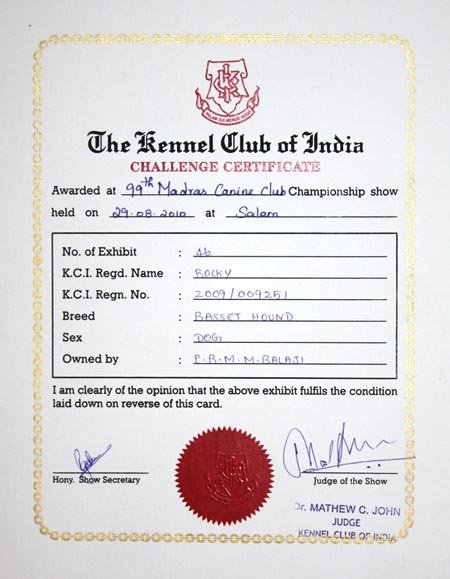 The Kennel Club of India
CHALLENGE CERTIFICATE
Awarded at 99th Madras Canine Club Championship show
held on 29.08.2010 at Salem
No. of Exhibit : 46
K.C.I. Regd. Name : ROCKY
K.C.I. Regn. No. : 2009/009251
Breed : BASSET HOUND
Sex : DOG
Owned by : P.R.M.M.BALAJI
I am clearly of the opinion that the above exhibit fulfils the condition
laid down on reverse of this card.
Hony. Show Secretary
Judge of the Show
Dr. MATHEW C. JOHN
JUDGE
KENNEL CLUB OF INDIA